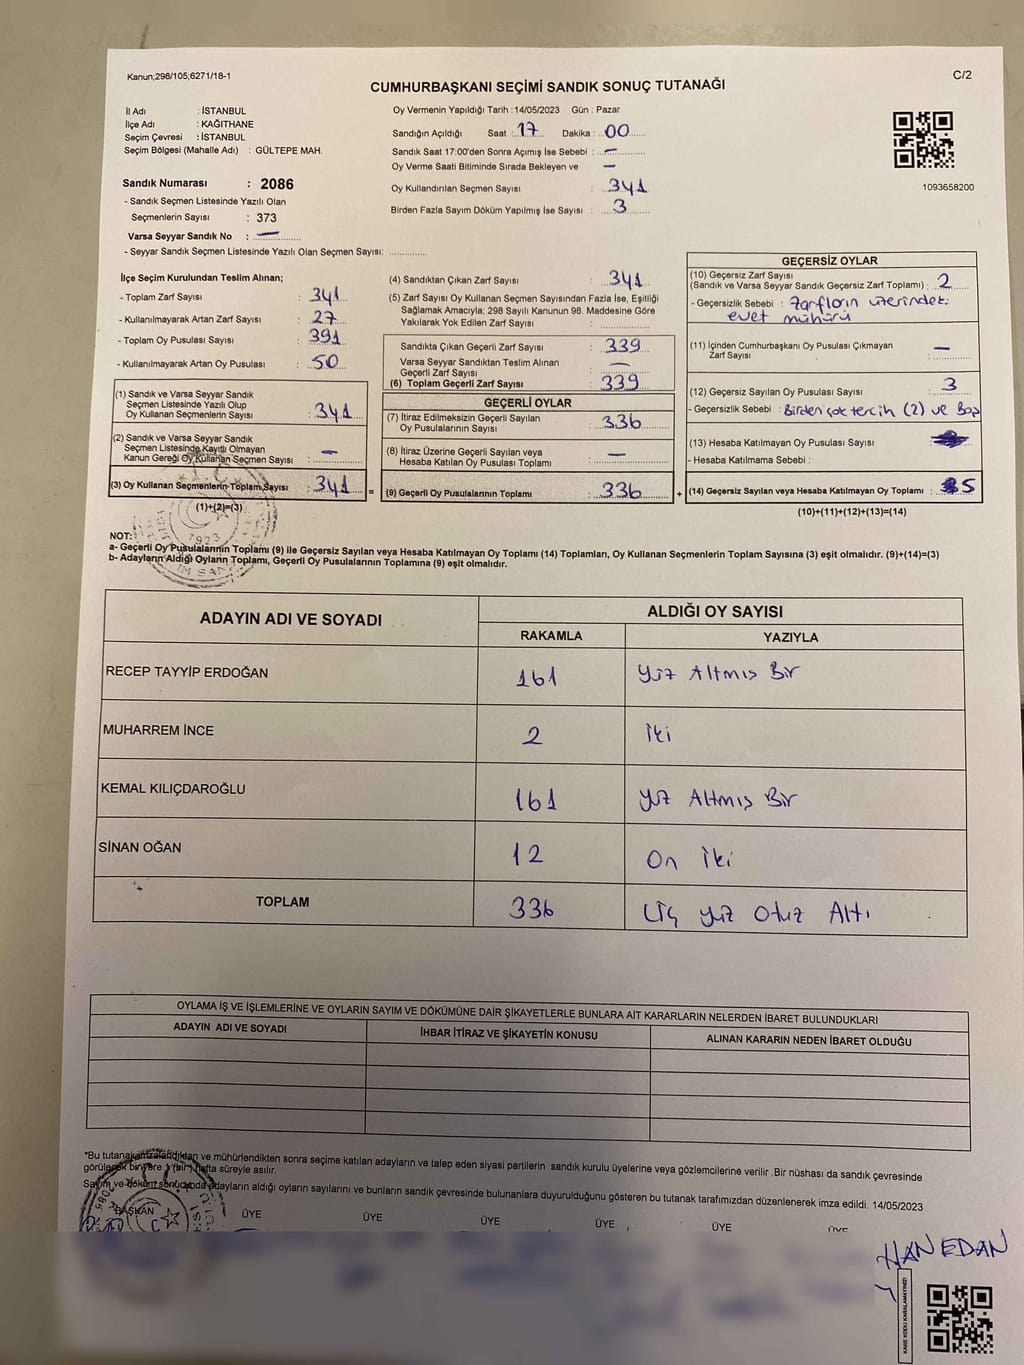 Kanun;298/105;6271/18-1
C/2
CUMHURBAŞKANI SEÇİMİ SANDIK SONUÇ TUTANAĞI
İl Adı : İSTANBUL
İlçe Adı : KAĞITHANE
Seçim Çevresi : İSTANBUL
Seçim Bölgesi (Mahalle Adı) : GÜLTEPE MAH.
Sandık Numarası : 2086
- Sandık Seçmen Listesinde Yazılı Olan
Seçmenlerin Sayısı : 373
Varsa Seyyar Sandık No : —
- Seyyar Sandık Seçmen Listesinde Yazılı Olan Seçmen Sayısı: ..............
Oy Vermenin Yapıldığı Tarih : 14/05/2023 Gün : Pazar
Sandığın Açıldığı Saat : 17 Dakika : 00
Sandık Saat 17:00'den Sonra Açımış İse Sebebi : —
Oy Verme Saati Bitiminde Sırada Bekleyen ve —
Oy Kullandırılan Seçmen Sayısı : 341
Birden Fazla Sayım Döküm Yapılmış İse Sayısı : 3
1093658200
İlçe Seçim Kurulundan Teslim Alınan;
- Toplam Zarf Sayısı : 341
- Kullanılmayarak Artan Zarf Sayısı : 27
- Toplam Oy Pusulası Sayısı : 391
- Kullanılmayarak Artan Oy Pusulası : 50
(1) Sandık ve Varsa Seyyar Sandık
Seçmen Listesinde Yazılı Olup
Oy Kullanan Seçmenlerin Sayısı : 341
(2) Sandık ve Varsa Seyyar Sandık
Seçmen Listesinde Kayıtlı Olmayan
Kanun Gereği Oy Kullanan Seçmen Sayısı : —
(3) Oy Kullanan Seçmenlerin Toplam Sayısı : 341 =
(1)+(2)=(3)
(4) Sandıktan Çıkan Zarf Sayısı : 341
(5) Zarf Sayısı Oy Kullanan Seçmen Sayısından Fazla İse, Eşitliği
Sağlamak Amacıyla; 298 Sayılı Kanunun 98. Maddesine Göre
Yakılarak Yok Edilen Zarf Sayısı : ..............
Sandıkta Çıkan Geçerli Zarf Sayısı : 339
Varsa Seyyar Sandıktan Teslim Alınan
Geçerli Zarf Sayısı : —
(6) Toplam Geçerli Zarf Sayısı : 339
GEÇERLİ OYLAR
(7) İtiraz Edilmeksizin Geçerli Sayılan
Oy Pusulalarının Sayısı : 336
(8) İtiraz Üzerine Geçerli Sayılan veya
Hesaba Katılan Oy Pusulası Toplamı : —
(9) Geçerli Oy Pusulalarının Toplamı : 336 +
GEÇERSİZ OYLAR
(10) Geçersiz Zarf Sayısı
(Sandık ve Varsa Seyyar Sandık Geçersiz Zarf Toplamı) : 2
- Geçersizlik Sebebi : Zarfların üzerindeki
evet mühürü
(11) İçinden Cumhurbaşkanı Oy Pusulası Çıkmayan
Zarf Sayısı : —
(12) Geçersiz Sayılan Oy Pusulası Sayısı : 3
- Geçersizlik Sebebi : Birden çok tercih (2) ve Boş
(13) Hesaba Katılmayan Oy Pusulası Sayısı
- Hesaba Katılmama Sebebi :
(14) Geçersiz Sayılan veya Hesaba Katılmayan Oy Toplamı : 5
(10)+(11)+(12)+(13)=(14)
NOT:
a- Geçerli Oy Pusulalarının Toplamı (9) ile Geçersiz Sayılan veya Hesaba Katılmayan Oy Toplamı (14) Toplamları, Oy Kullanan Seçmenlerin Toplam Sayısına (3) eşit olmalıdır. (9)+(14)=(3)
b- Adayların Aldığı Oyların Toplamı, Geçerli Oy Pusulalarının Toplamına (9) eşit olmalıdır.
ADAYIN ADI VE SOYADI
ALDIĞI OY SAYISI
RAKAMLA YAZIYLA
RECEP TAYYİP ERDOĞAN 161 Yüz Altmış Bir
MUHARREM İNCE 2 İki
KEMAL KILIÇDAROĞLU 161 Yüz Altmış Bir
SİNAN OĞAN 12 On İki
TOPLAM 336 Üç Yüz Otuz Altı
OYLAMA İŞ VE İŞLEMLERİNE VE OYLARIN SAYIM VE DÖKÜMÜNE DAİR ŞİKAYETLERLE BUNLARA AİT KARARLARIN NELERDEN İBARET BULUNDUKLARI
ADAYIN ADI VE SOYADI İHBAR İTİRAZ VE ŞİKAYETİN KONUSU ALINAN KARARIN NEDEN İBARET OLDUĞU
*Bu tutanak imzalandıktan ve mühürlendikten sonra seçime katılan adayların ve talep eden siyasi partilerin sandık kurulu üyelerine veya gözlemcilerine verilir .Bir nüshası da sandık çevresinde
görülecek bir yere 1 (bir) hafta süreyle asılır.
Sayım ve döküm sonucunda adayların aldığı oyların sayılarını ve bunların sandık çevresinde bulunanlara duyurulduğunu gösteren bu tutanak tarafımızdan düzenlenerek imza edildi. 14/05/2023
BAŞKAN ÜYE ÜYE ÜYE ÜYE ÜYE ÜYE
HANEDAN
KARE KODU KARALAMAYINIZ!